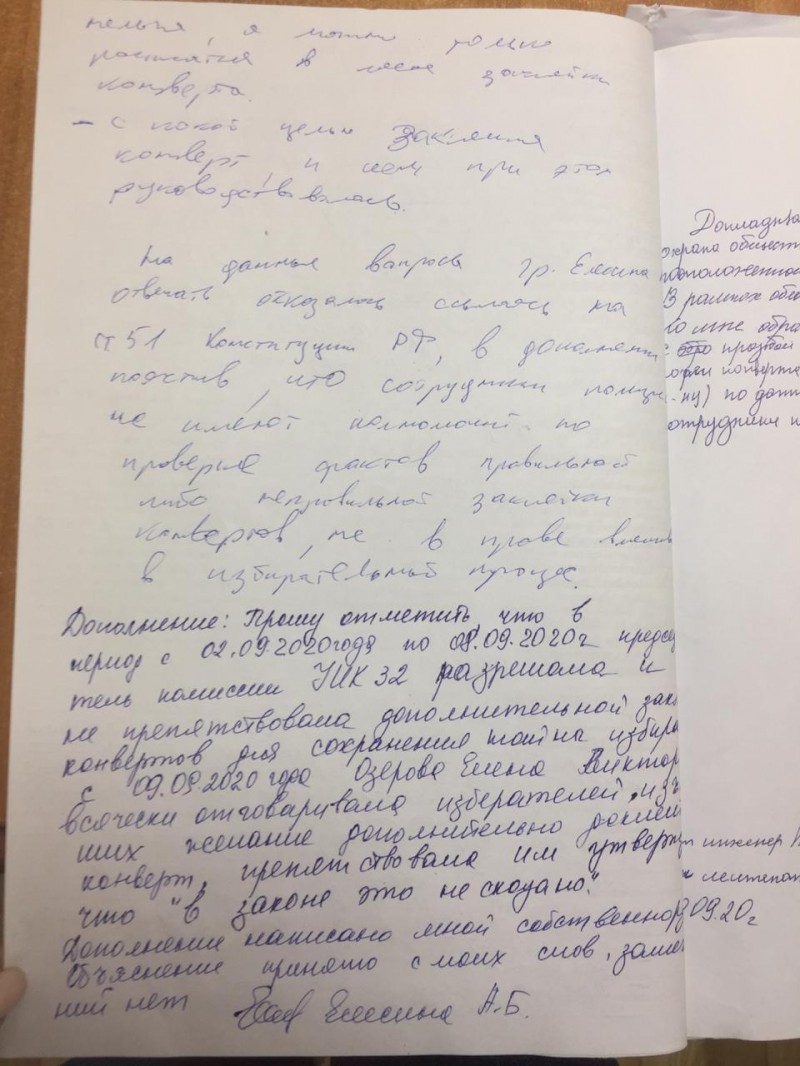 нельзя, я можно только
в месте заклейки
конверта.
- с какой целью Заклеила
конверт, и чем при этом
руководствовалась.
На данные вопросы гр. Елесина
отвечать отказалась ссылаясь на
ст 51 Конституции РФ, в дополнении
что сотрудники полиц
не имеют полномочий по
проверке фактов правильной
либо неправильной заклейки
конвертов, не в праве
в избирательный процес.
Дополнение: Прошу отметить что в
период с 02.09.2020года по 08.09.2020г предсе
тель комиссии УИК 32 разрешала и
не препятствовала дополнительной зак
конвертов для сохранения тайна избира
с 09.09.2020 года Озерова Елена Виктор
всячески отговаривала изберателей, из
ших желание дополнительно доклеи
конверт, препятствовала им утвер
что "в законе это не сказано".
Дополнение написано мной собственнор
Объяснение принято с моих слов, заме
ний нет Елесина А.Б.
Докладыва
охрана обществ
В рамках обще
ко мне обра
с прозьбой
по дан
сотрудники п
инженер
лейтенант
09.20г